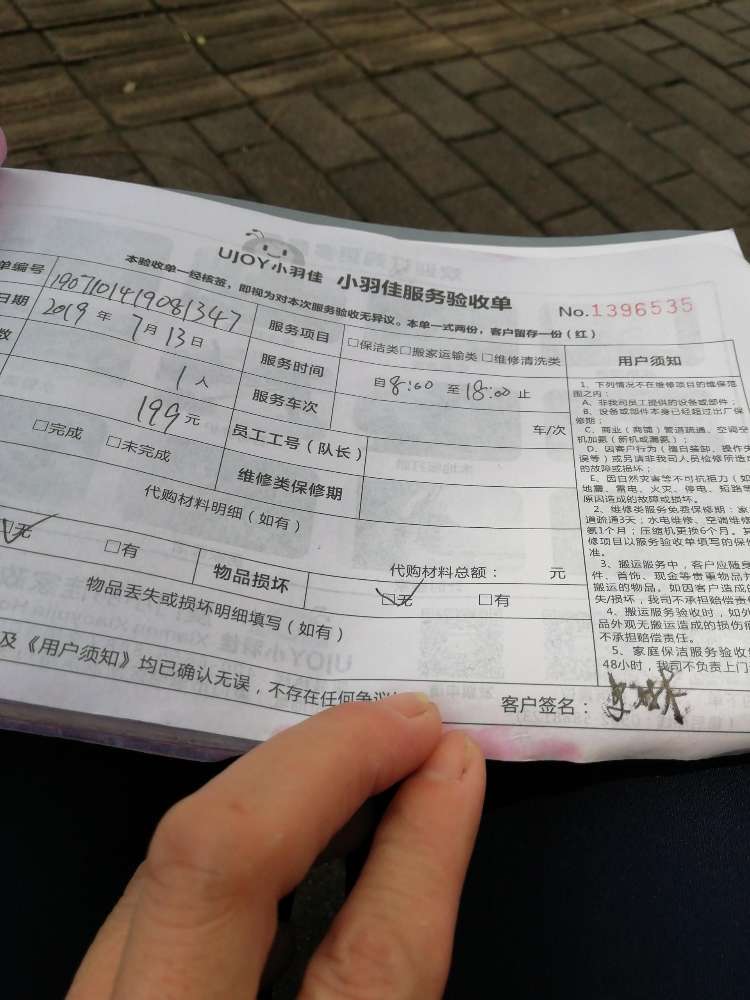 UJOY小羽佳 小羽佳服务验收单
No.1396535
本验收单一经核签，即视为对本次服务验收无异议。本单一式两份，客户留存一份（红）
单编号 1907101419081347 服务项目 □保洁类□搬家运输类□维修清洗类 用户须知
日期 2019年7月13日 服务时间 自8:00至18:00止
数 1人 服务车次 车/次
199元 员工工号（队长）
□完成 □未完成 维修类保修期
代购材料明细（如有）
代购材料总额： 元
□无 □有 物品损坏 □无 □有
物品丢失或损坏明细填写（如有）
及《用户须知》均已确认无误，不存在任何争议
客户签名：
1、下列情况不在维修项目的维保范
围之内：
A、非我司员工提供的设备或部件；
B、设备或部件本身已经超过出厂保
修期；
C、商业（商铺）管道疏通、空调空
机加氨（新机或漏氨）；
D、因客户行为（擅自装卸、操作失
误等）或另请非我司人员检修所造成
的故障或损坏；
E、因自然灾害等不可抗拒力（如
地震、雷电、火灾、停电、短路等
原因造成的故障或损坏。
2、维修类服务免费保修期：家
道疏通3天；水电维修、空调维修
氨1个月；压缩机更换6个月。其
修项目以服务验收单填写的保修
准。
3、搬运服务中，客户应随身
件、首饰、现金等贵重物品并
搬运的物品。如因客户造成的
失/损坏，我司不承担赔偿责
4、搬运服务验收时，如外
品外观无搬运造成的损伤痕
不承担赔偿责任。
5、家庭保洁服务验收
48小时，我司不负责上门